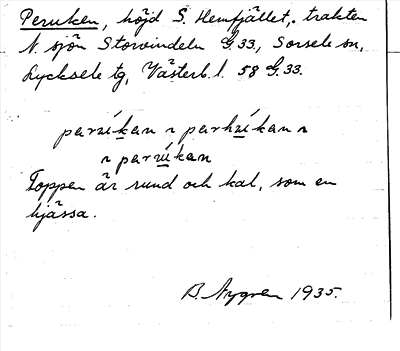 Peruken, höjd S. Hemfjället, trakten
N. sjön Storvindeln G.33, Sorsele sn,
Lycksele tg, Västerb. l. 58 G.33.
Toppen är rund och kal, som en
hjässa.
B. Nygren 1935.